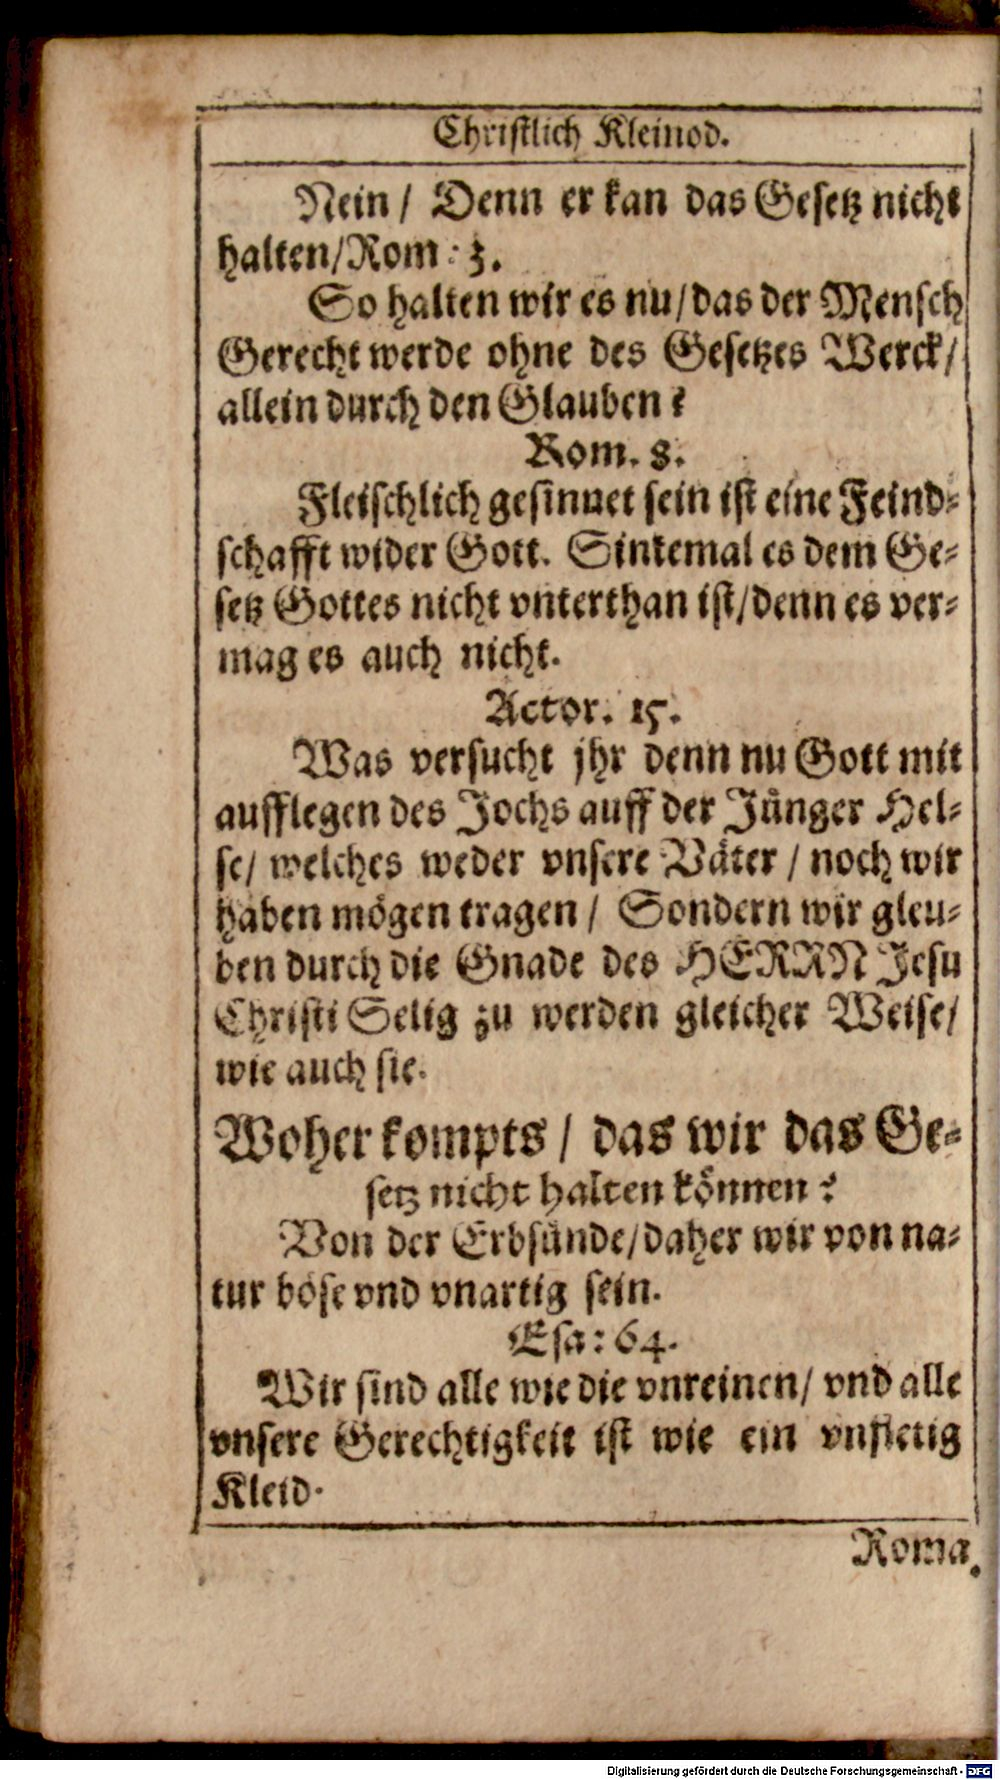 Christlich Kleinod.
Nein / Denn er kan das Gesetz nicht
halten/Rom: 3.
So halten wir es nu/das der Mensch
Gerecht werde ohne des Gesetzes Werck/
allein durch den Glauben?
Rom. 8.
Fleischlich gesinnet sein ist eine Feind-
schafft wider Gott. Sintemal es dem Ge-
setz Gottes nicht vnterthan ist/denn es ver-
mag es auch nicht.
Actor. 15.
Was versucht jhr denn nu Gott mit
aufflegen des Jochs auff der Jünger Hel-
se/ welches weder vnsere Väter / noch wir
haben mögen tragen / Sondern wir gleu-
ben durch die Gnade des HERRN Jesu
Christi Selig zu werden gleicher Weise/
wie auch sie.
Woher kompts / das wir das Ge-
setz nicht halten können?
Von der Erbsünde/daher wir von na-
tur böse vnd vnartig sein.
Esa: 64.
Wir sind alle wie die vnreinen/ vnd alle
vnsere Gerechtigkeit ist wie ein vnfletig
Kleid.
Roma.
Digitalisierung gefördert durch die Deutsche Forschungsgemeinschaft - DFG